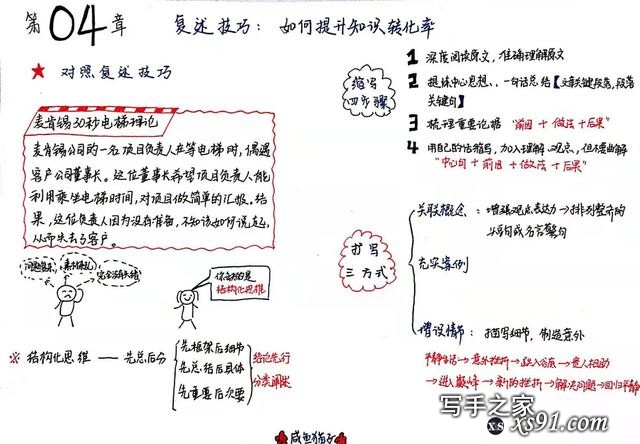 第04章
复述技巧：如何提升知识转化率
★ 对照复述技巧
麦肯锡30秒电梯理论
麦肯锡公司的一名项目负责人在等电梯时，偶遇
客户公司董事长。这位董事长希望项目负责人能
利用乘坐电梯时间，对项目做简单的汇报。结
果，这位负责人因为没有准备，不知该如何说起，
从而失去了客户。
你缺的是
结构化思维
※ 结构化思维 —— 先总后分
先框架后细节
先总结后具体
先重要后次要
结论先行
分类阐述
缩写
四步骤
1 深度阅读原文，准确理解原文
2 提炼中心思想，一句话总结【文章关键段落，段落
关键句】
3 梳理重要论据 "前因 + 做法 + 后果"
4 用自己的话缩写，加入理解、观点，但不要曲解
"中心句 + 前因 + 做法 + 后果"
扩写
三方式
关联概念：增强观点表达力 → 排列整齐的
从句或名言警句
充实案例
增设情节：描写细节，制造意外
平静生活→意外挫折→跌入谷底→贵人相助
→进入巅峰→新的挫折→解决问题→回归平静
咸鱼猫子
写手之家
xs91.com